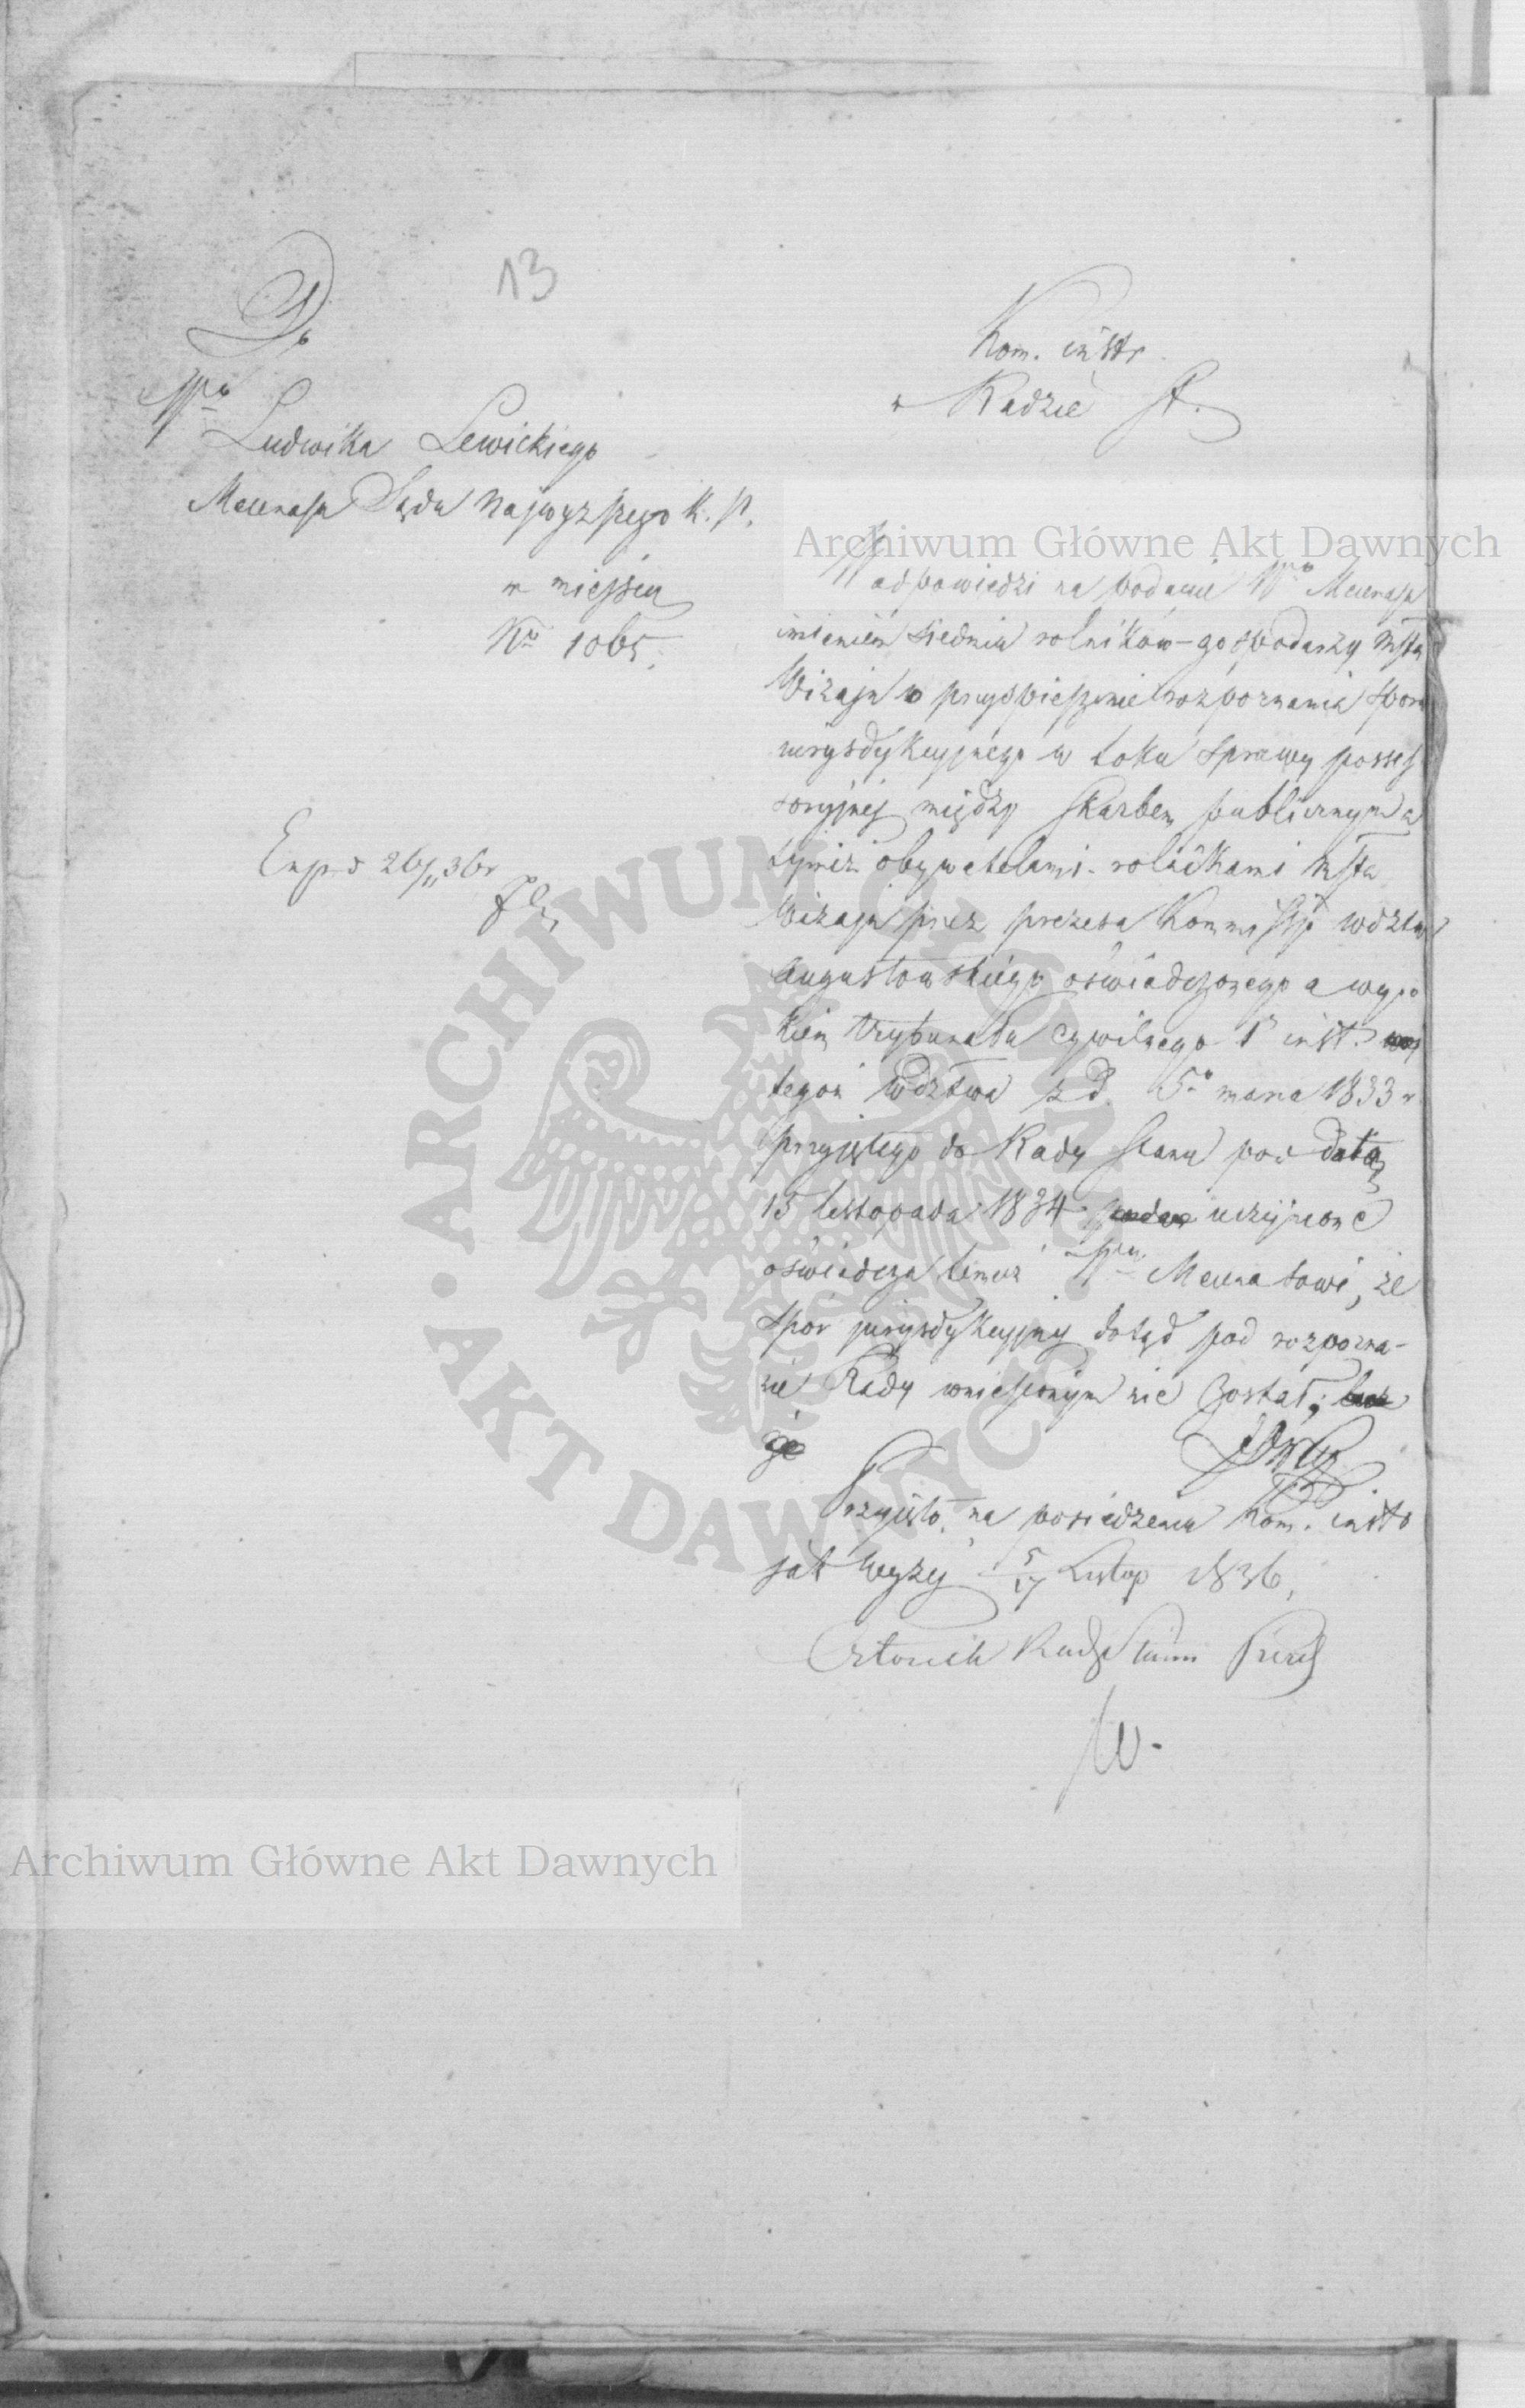 13
Do
Wgo
Ludwika Lewickiego
Mecenasa Sądu Najwyższego K. P.
w miejscu
No 1065.
Exp. d 26/11 36 r
Kom. instr.
w Radzie St.
W odpowiedzi na podanie Wgo Mecenasa
imieniem siedmiu rolników-gospodarzy Msta
Wiżajn o przyspieszenie rozpoznania sporu
jurysdykcyjnego w toku sprawy posses
soryjnej między Skarbem publicznym a
tymiż obywatelami-rolnikami Msta
Wiżajn przez prezesa Kommissyi Wdztwa
Augustowskiego oświadczonego a wyro
kiem Trybunału Cywilnego 1 inst.
tegoż Wdztwa z d. 5go marca 1833 r
przyjętego do Rady Stanu pod datą
15 listopada 1834 uczynione
oświadcza temuż Wmu Mecenasowi, że
spór jurysdykcyjny dotąd pod rozpozna-
nie Rady wniesionym nie został;
Przyjęto na posiedzeniu Kom. instr
jak wyżej 5/17 Listop 1836,
Członek Rady Stanu Prezes
W.
Archiwum Główne Akt Dawnych
Archiwum Główne Akt Dawnych
ARCHIWUM GŁÓWNE • AKT DAWNYCH •